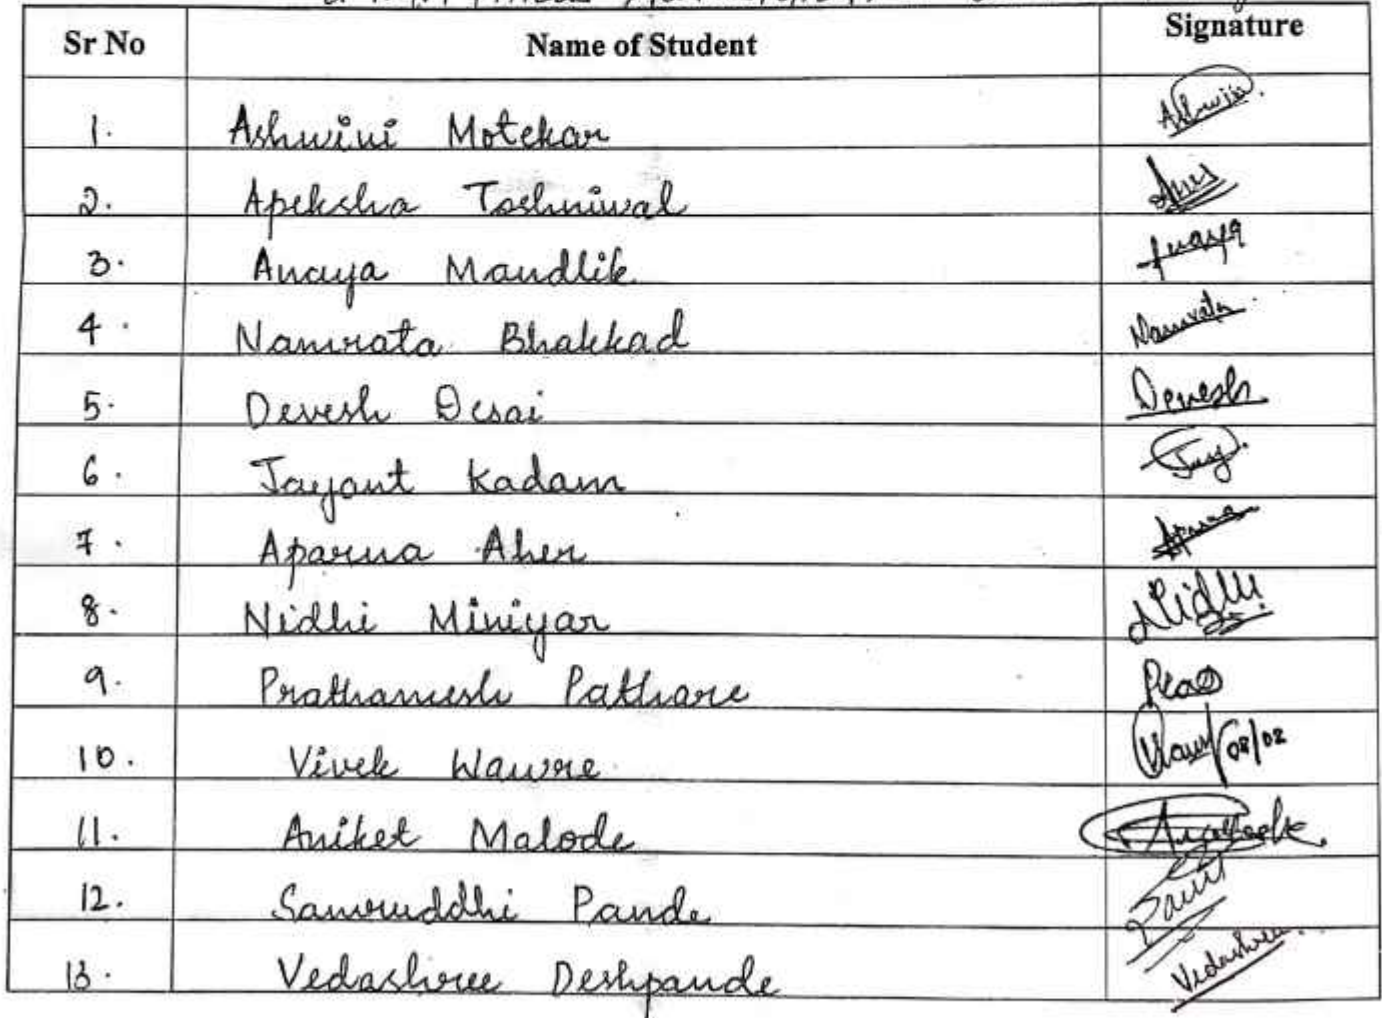 Sr No Name of Student Signature
1. Ashwini Motekar Ashwini
2. Apeksha Toshniwal
3. Anaya Mandlik Anaya
4. Namrata Bhakkad Namrata
5. Devesh Desai Devesh
6. Jayant Kadam Jay
7. Aparna Aher Aparna
8. Nidhi Miniyar Nidhi
9. Prathamesh Pathare
10. Vivek Wawre 08/02
11. Aniket Malode
12. Samruddhi Pande
13. Vedashree Deshpande Vedashree